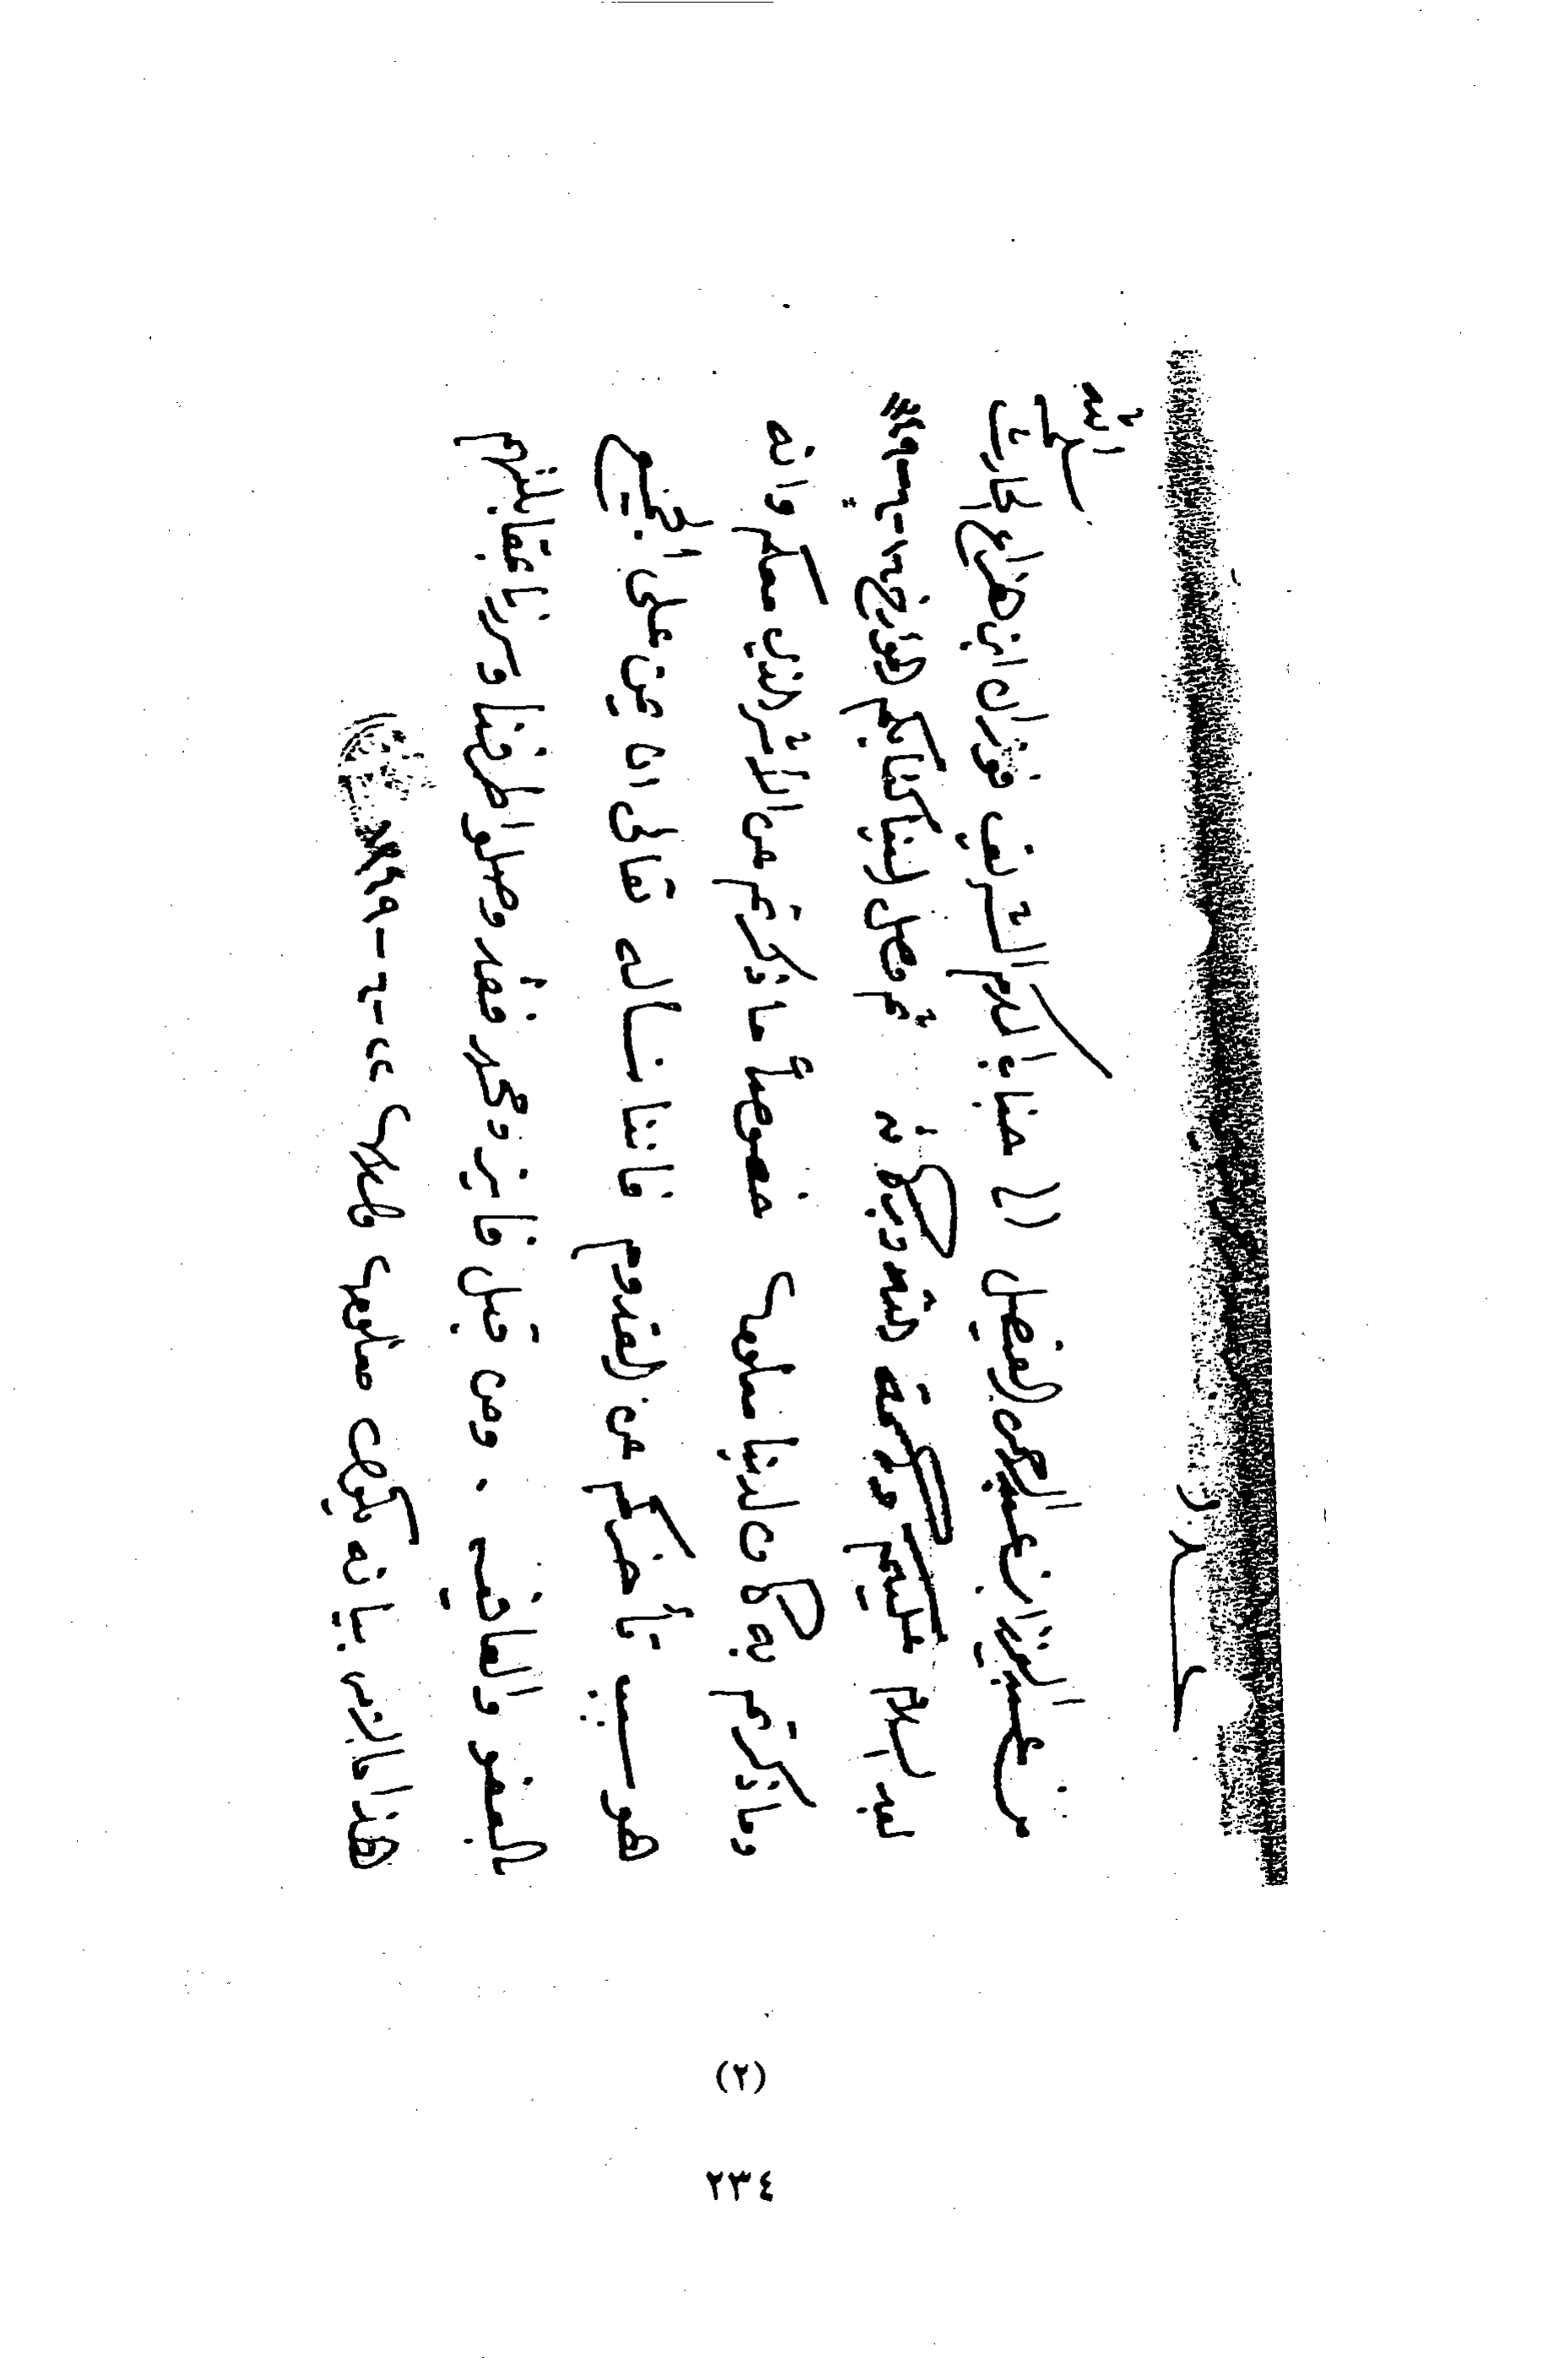 عدد
من عبد العزيز بن عبد الرحمن الفيصل الى جناب المكرم الشريف فوزان ابن هزاع الحارث سلمه الله
بعد السلام عليكم ورحمة الله وبركاته ثم وصل الينا كتابكم المؤرخ
وما ذكرتم به كان لدينا معلوم خصوصاً ما ذكرتم من الاثر الذي معكم وانه
هو سبب تأخركم عن القدوم فاننا نسأله تعالى ان يمن على الجميع
بالعفو والعافية . ومن قبل فايز ومحمد فقد وصلوا طرفنا وحررنا عقابلتهم
هذا ما لزم بيانه ليكون معلوم والسلام ٢٢-٢-
(٢)
٢٣٤